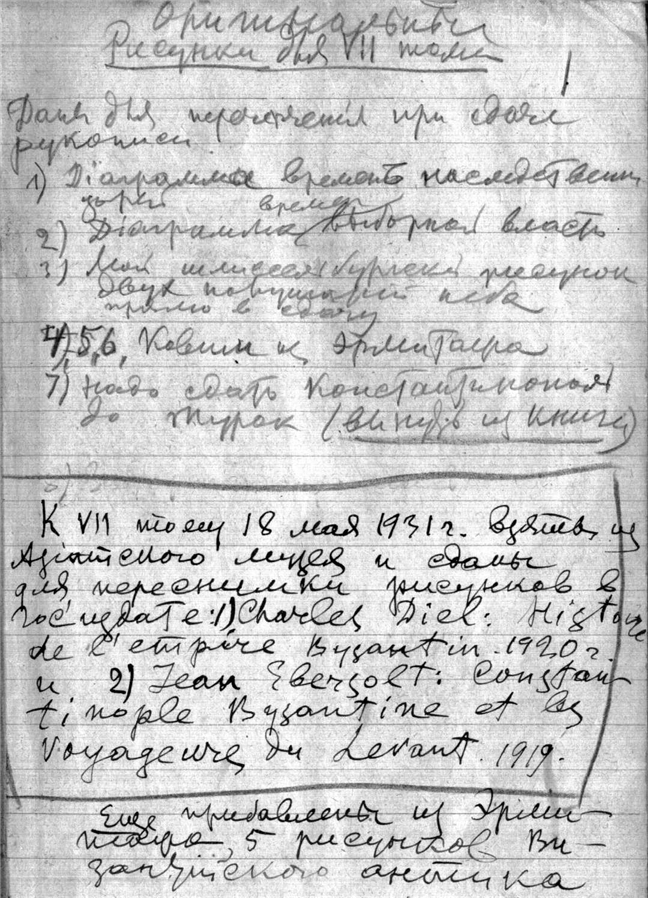 Оригинальный
Рисунки для VII тома
Даны для при сдаче
рукописи.
1) Діаграмма времень наследственн
времен
2) Діаграмма выборной власть
3) Мой шлиссельбургскій рисунок
двух неба
прямо в сдачу
4), 5, 6, из Эрмитажа
7) Надо сдать Константинополь
до Турок (вынуть из книги)
К VII тому 18 мая 1931 г. взяты из
Азіатского музея и сданы
для пересъимки рисунков в
Госиздате: 1) Charles Diel: Histoire
de l'empire Byzantin. 1920 г.
и 2) Jean Eberzolt: Constan
tinople Byzantine et les
Voyageurs du Levant. 1919.
Еще прибавлены из Эрми-
тажа 5 рисунков Ви-
зантійского антика